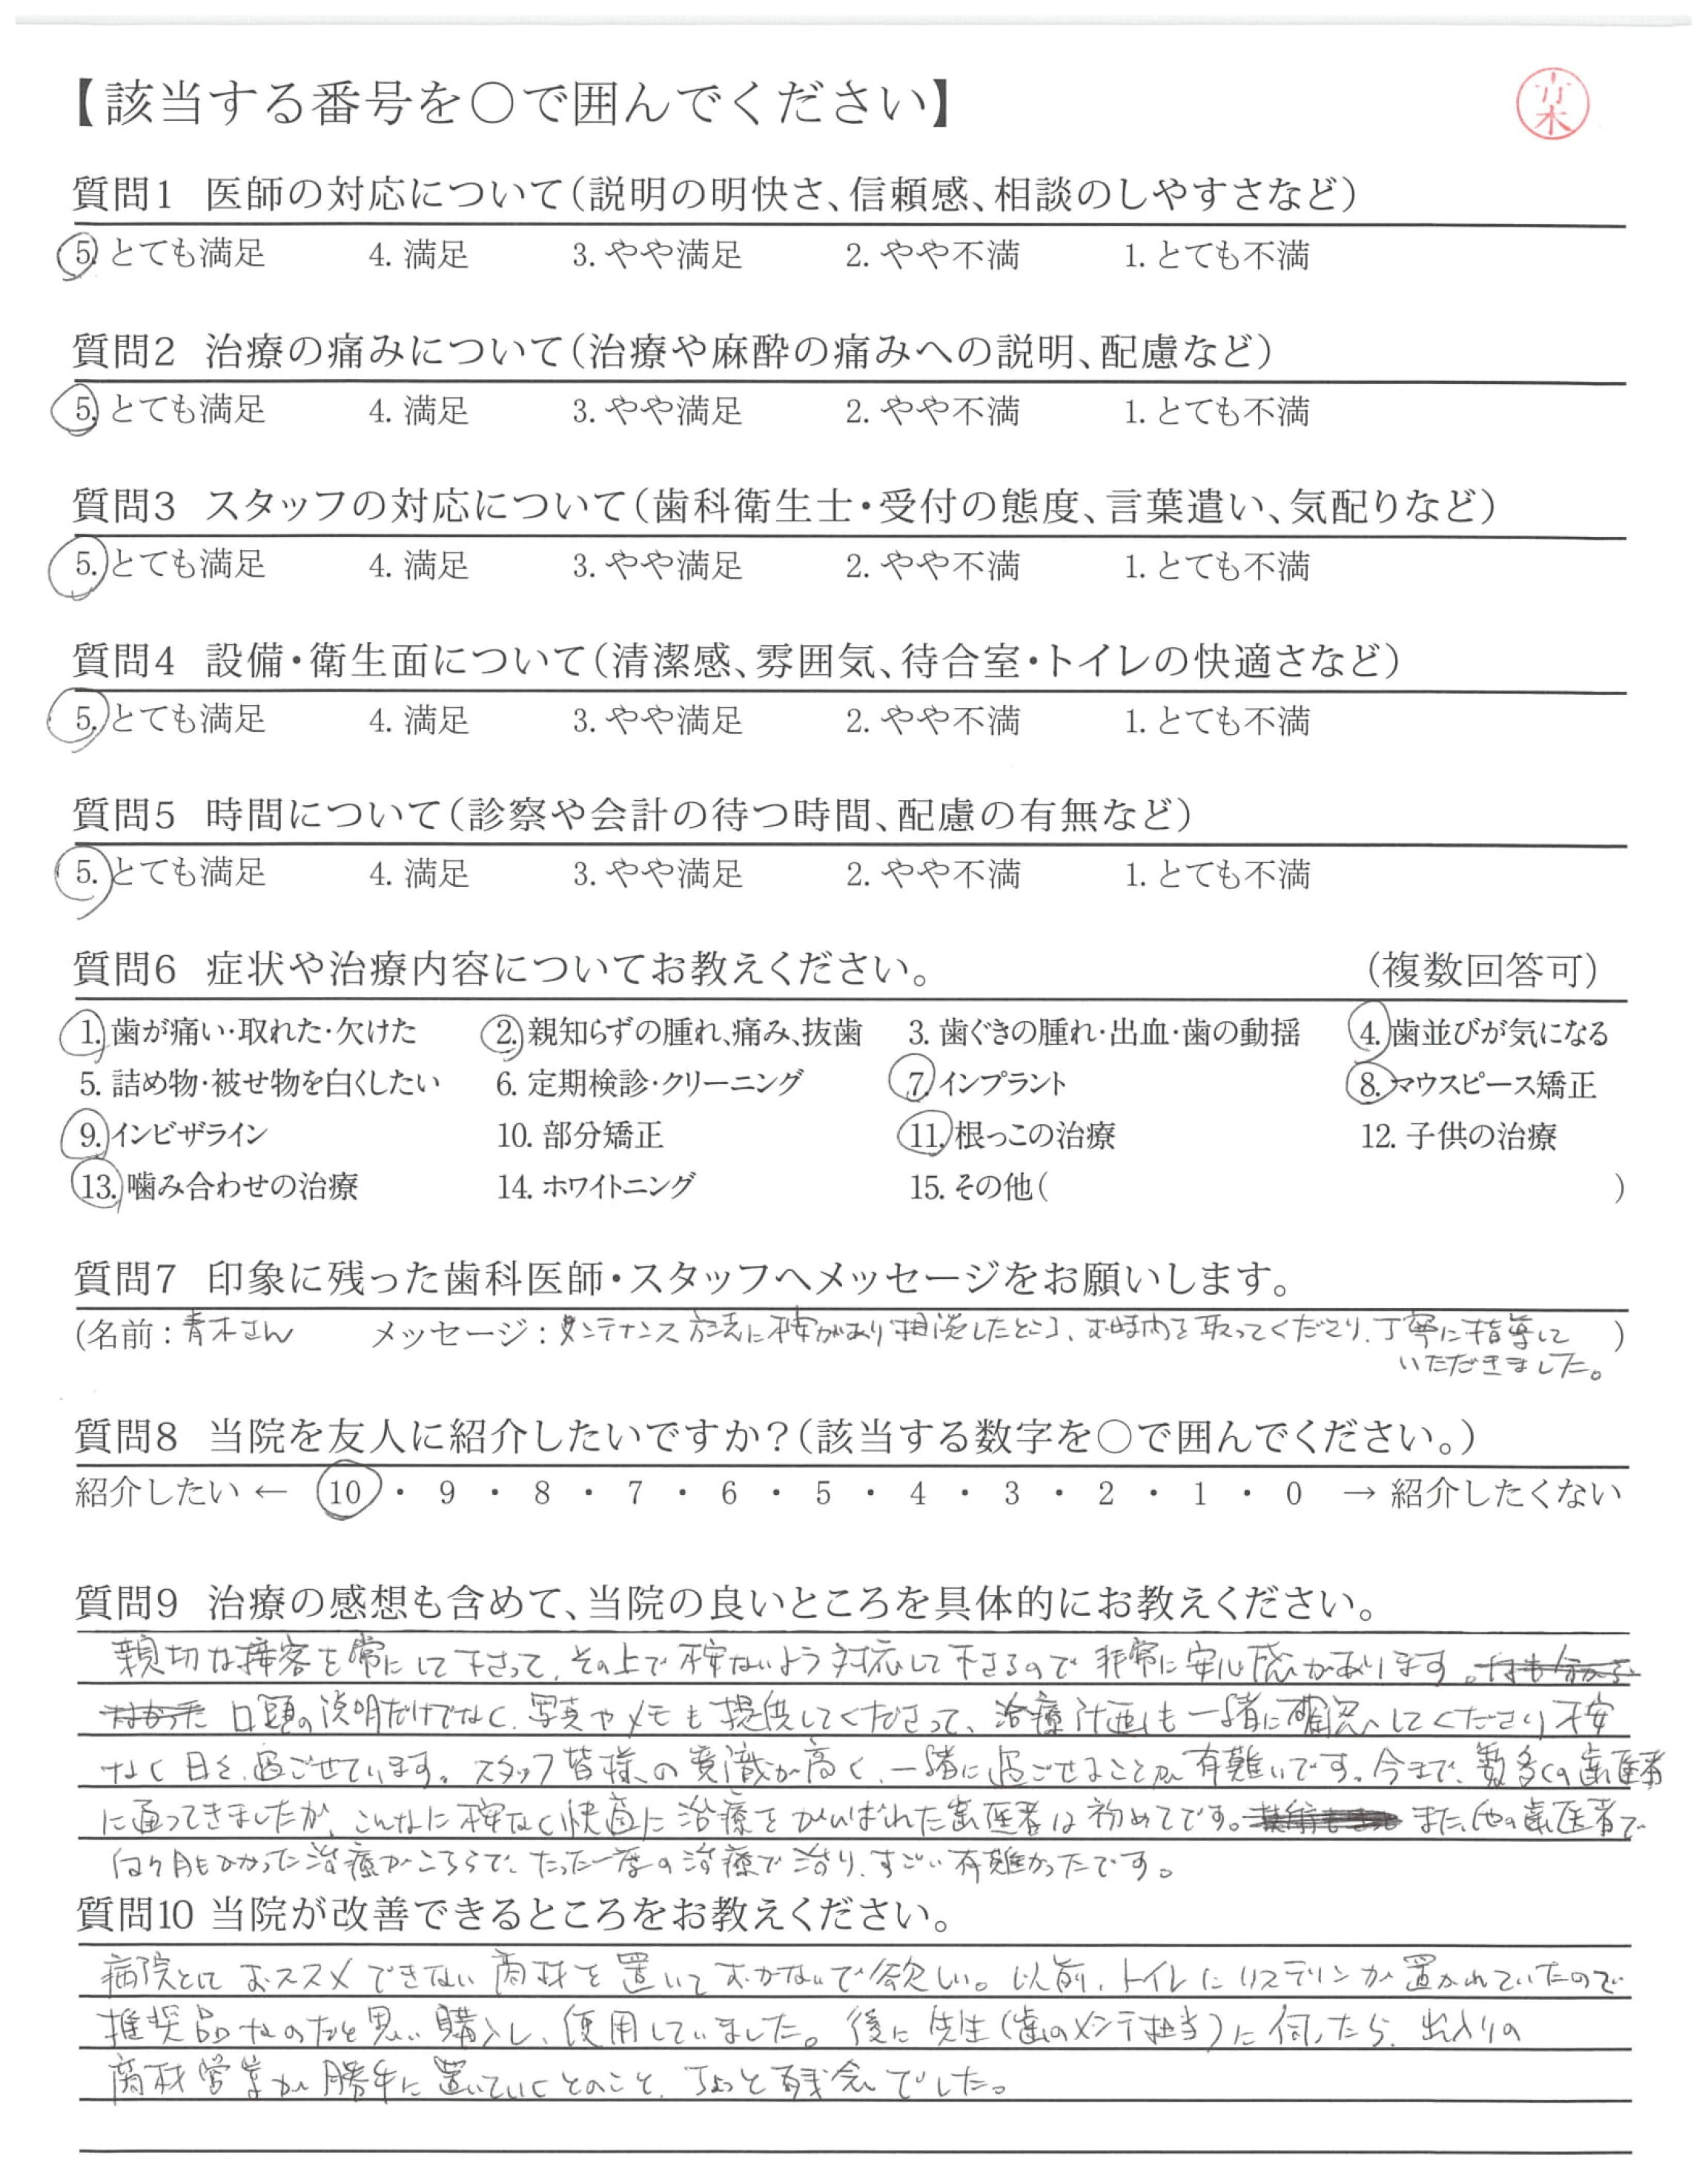 【該当する番号を○で囲んでください】
青木
質問1 医師の対応について(説明の明快さ、信頼感、相談のしやすさなど)
5. とても満足 4. 満足 3. やや満足 2. やや不満 1. とても不満
質問2 治療の痛みについて(治療や麻酔の痛みへの説明、配慮など)
5. とても満足 4. 満足 3. やや満足 2. やや不満 1. とても不満
質問3 スタッフの対応について(歯科衛生士・受付の態度、言葉遣い、気配りなど)
5. とても満足 4. 満足 3. やや満足 2. やや不満 1. とても不満
質問4 設備・衛生面について(清潔感、雰囲気、待合室・トイレの快適さなど)
5. とても満足 4. 満足 3. やや満足 2. やや不満 1. とても不満
質問5 時間について(診察や会計の待つ時間、配慮の有無など)
5. とても満足 4. 満足 3. やや満足 2. やや不満 1. とても不満
質問6 症状や治療内容についてお教えください。 (複数回答可)
1. 歯が痛い・取れた・欠けた 2. 親知らずの腫れ、痛み、抜歯 3. 歯ぐきの腫れ・出血・歯の動揺 4. 歯並びが気になる
5. 詰め物・被せ物を白くしたい 6. 定期検診・クリーニング 7. インプラント 8. マウスピース矯正
9. インビザライン 10. 部分矯正 11. 根っこの治療 12. 子供の治療
13. 噛み合わせの治療 14. ホワイトニング 15. その他( )
質問7 印象に残った歯科医師・スタッフへメッセージをお願いします。
(名前:青木さん メッセージ:メンテナンス方法に不安があり相談したところ、お時間を取ってくださり、丁寧に指導して )
いただきました。
質問8 当院を友人に紹介したいですか?(該当する数字を○で囲んでください。)
紹介したい ← 10 ・ 9 ・ 8 ・ 7 ・ 6 ・ 5 ・ 4 ・ 3 ・ 2 ・ 1 ・ 0 → 紹介したくない
質問9 治療の感想も含めて、当院の良いところを具体的にお教えください。
親切な接客を常にして下さって、その上で不安ないよう対応して下さるので非常に安心感があります。
口頭の説明だけでなく、写真やメモも提供してくださって、治療計画も一緒に確認してくださり不安
なく日々過ごせています。スタッフ皆様の意識が高く、一緒に過ごせることが有難いです。今まで、数多くの歯医者
に通ってきましたが、こんなに不安なく快適に治療をがんばれた歯医者は初めてです。また、他の歯医者で
何ヶ月もかかった治療がこちらで、たった一度の治療で治り、すごい有難かったです。
質問10 当院が改善できるところをお教えください。
病院としておススメできない商材を置いておかないで欲しい。以前、トイレにリステリンが置かれていたので
推奨品なのだと思い購入し、使用していました。後に先生(歯のメンテ担当)に伺ったら、出入りの
商材営業が勝手に置いていくとのこと、ちょっと残念でした。